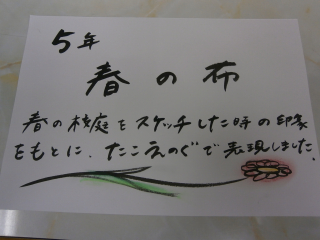 5年
春の布
春の校庭をスケッチした時の印象
をもとに、たこえのぐで表現しました。